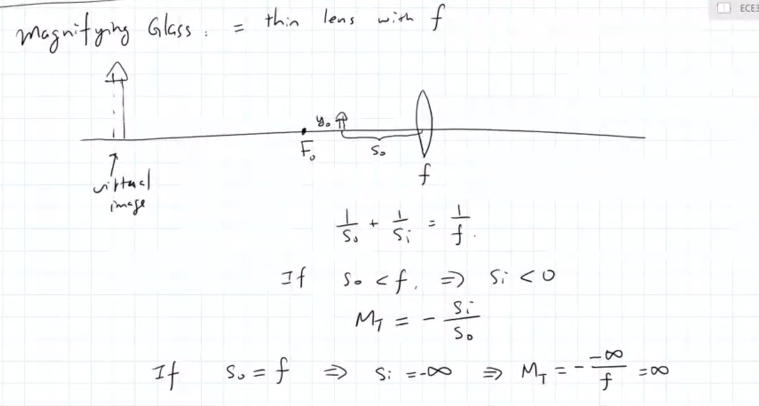 ECE3
Magnifying Glass : = thin lens with f
y₀
F₀
S₀
f
virtual
image
1/S₀ + 1/Sᵢ = 1/f.
If S₀ < f. ⇒ Sᵢ < 0
M_T = - Sᵢ/S₀
If S₀ = f ⇒ Sᵢ = -∞ ⇒ M_T = - -∞/f = ∞